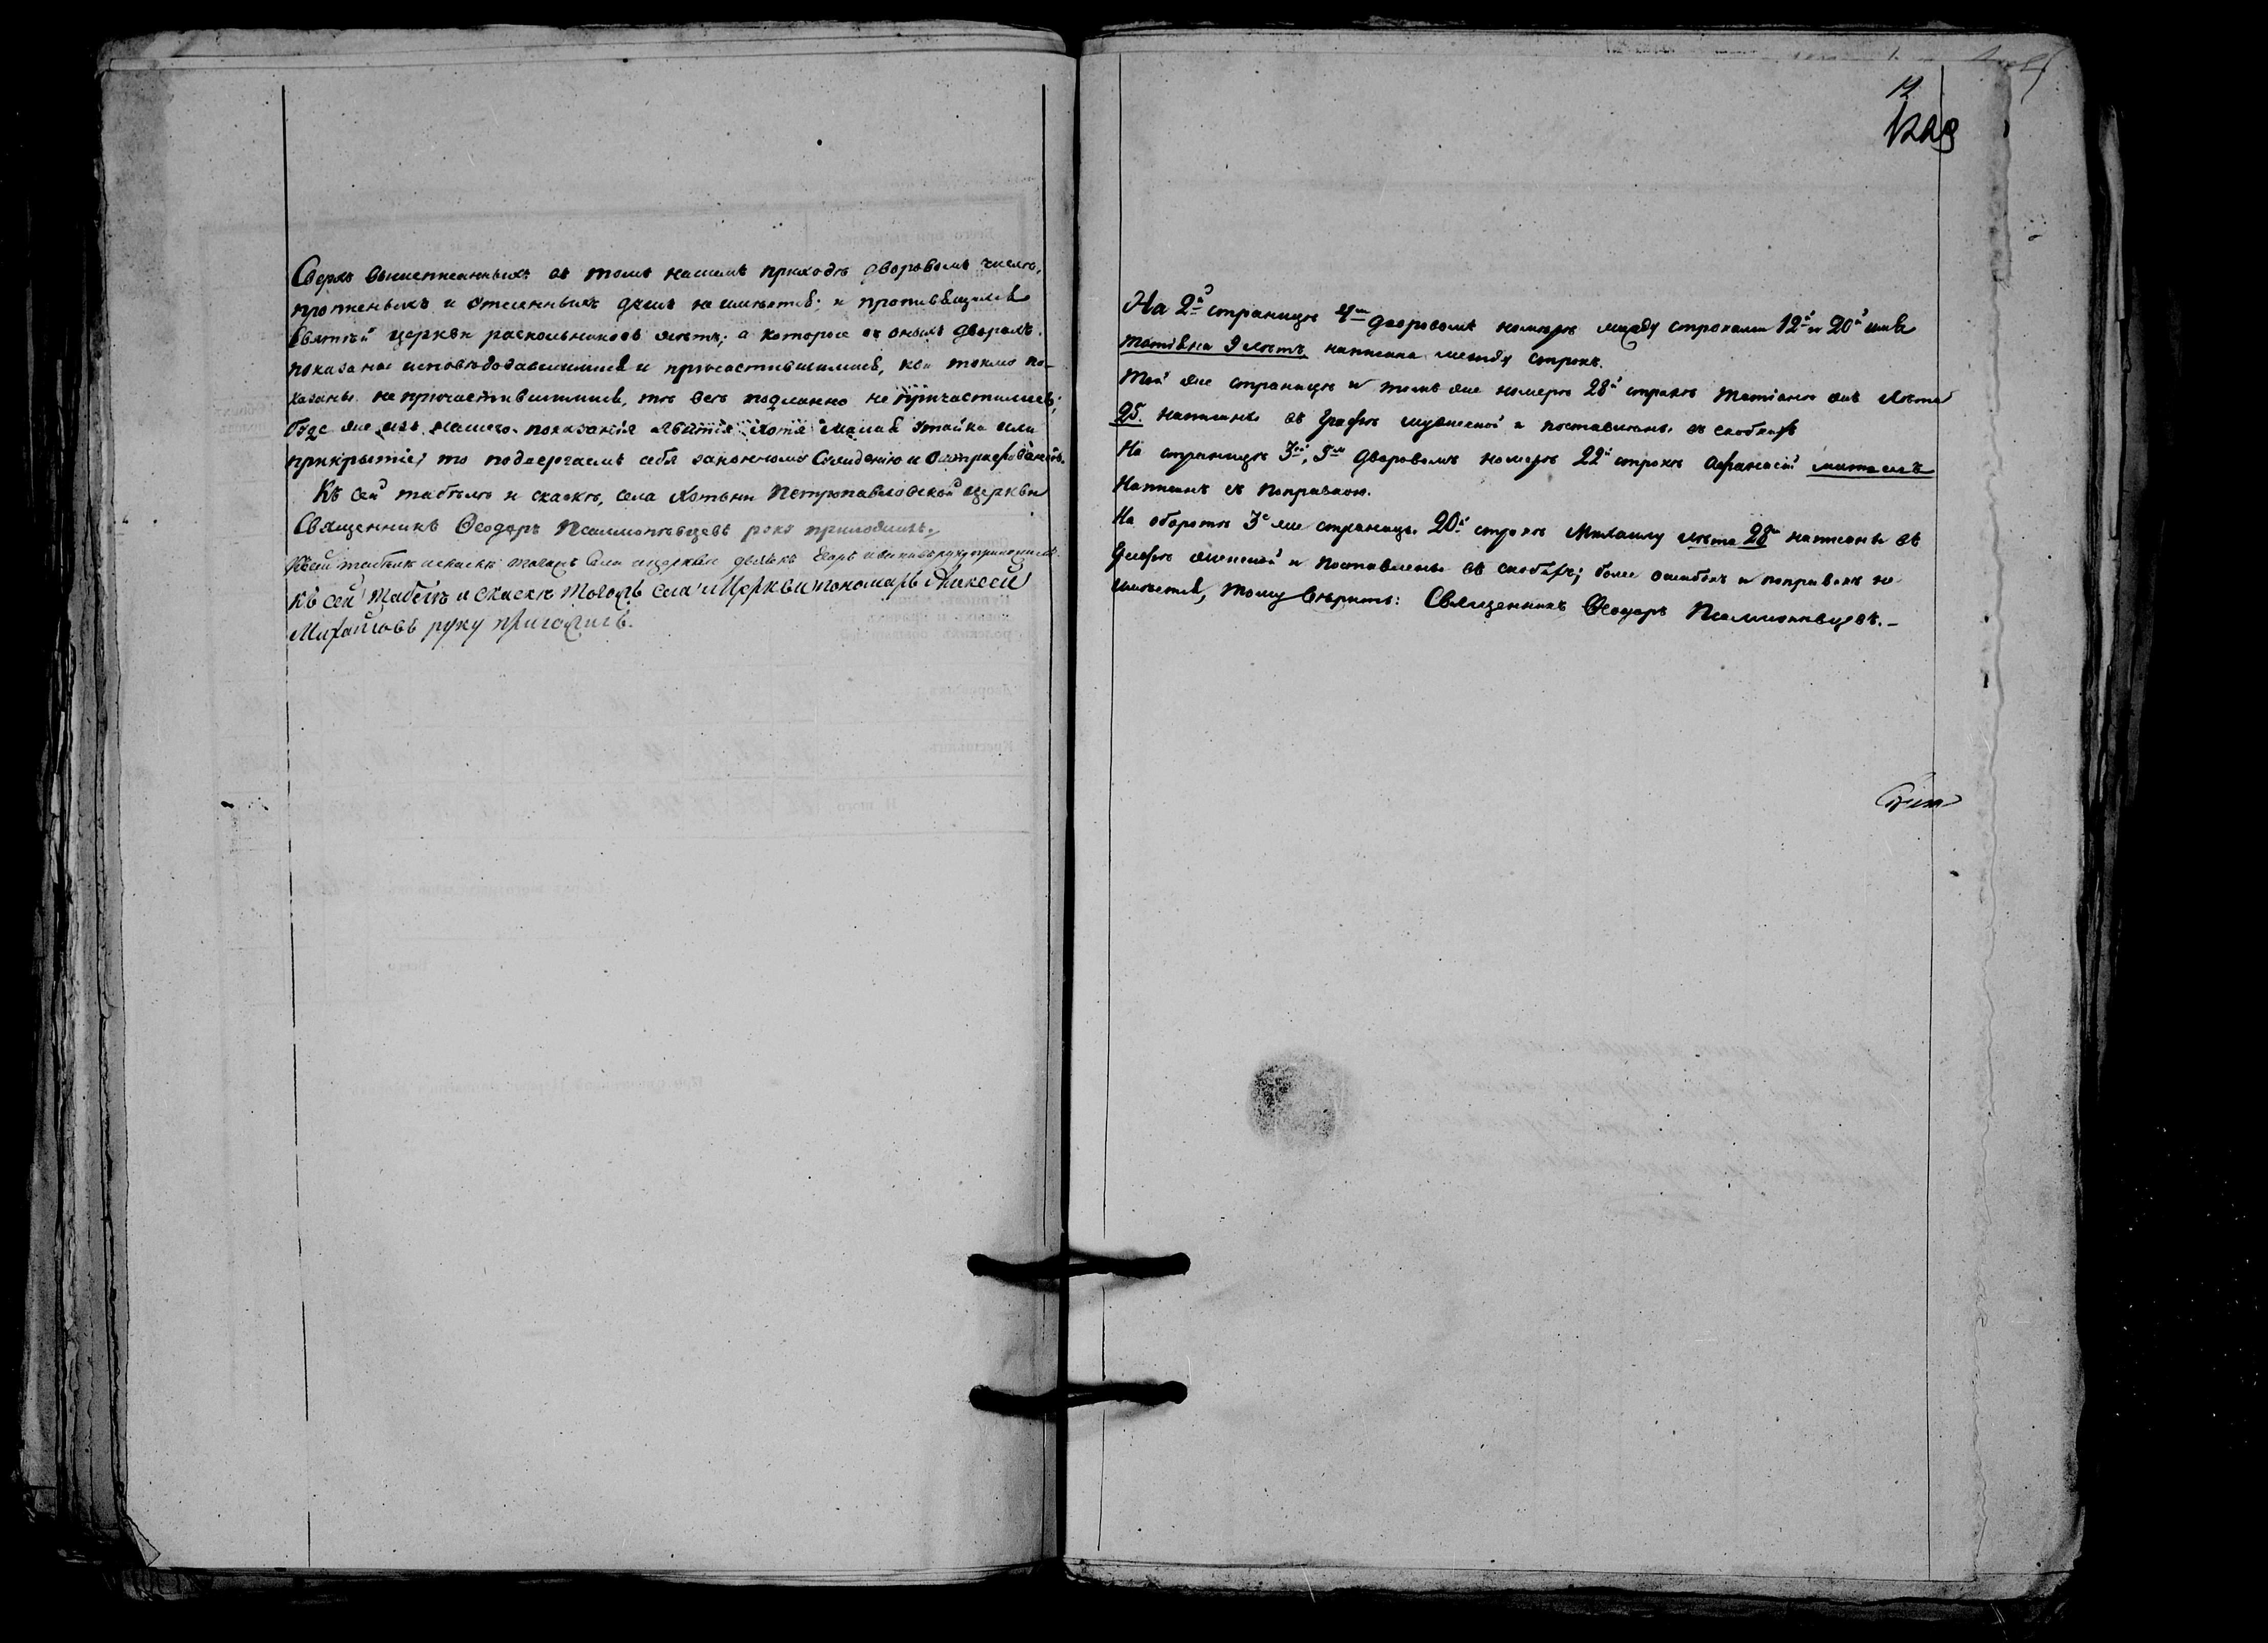 Сверхъ вышеписанныхъ въ томъ нашемъ приходѣ дворовомъ числѣ,
прописныхъ и отсенныхъ душъ не имѣется; и противящихся
Святѣй церкви раскольниковъ нѣтъ; а которые въ оныхъ дворахъ
показаны исповѣдовавшимися и причастившимися, кои токмо по-
казаны не причастившимися, тѣ всѣ подлинно не причастились;
буде же изъ нашего показанія явится хотя малая утайка или
прикрытіе; то подвергаемъ себя законному сужденію и оштрафованію.
Къ сей табелѣ и сказкѣ, села Хотыни Петропавловской церкви
Священникъ Ѳеодоръ Псаломпѣвцевъ руку приложилъ.
Къ сей табелѣ и сказкѣ тогожъ села и церкви дьячекъ руку приложилъ
Къ сей табелѣ и сказкѣ тогожъ села и Церкви пономарь Алексей
Михайловъ руку приложилъ.
12
1229
На 2й страницѣ 4мъ дворовомъ номерѣ между строками 12й и 20й имя
Татіяна 9 лѣтъ написана между строкъ.
Той же страницѣ и томъ же номерѣ 28й строкѣ Татіанѣ лѣта
25. написаны въ графѣ мужеской и поставлены въ скобкахъ
На страницѣ 3й, 9мъ дворовомъ номерѣ 22й строкѣ Афанасій
Написанъ съ поправкою.
На оборотѣ 3й же страницы 20й строкѣ Михаилу лѣта 28 написаны въ
графѣ женской и поставлены въ скобкахъ; более ошибокъ и поправокъ не
имѣется, тому вѣрить: Священникъ Ѳеодоръ Псаломпѣвцевъ.